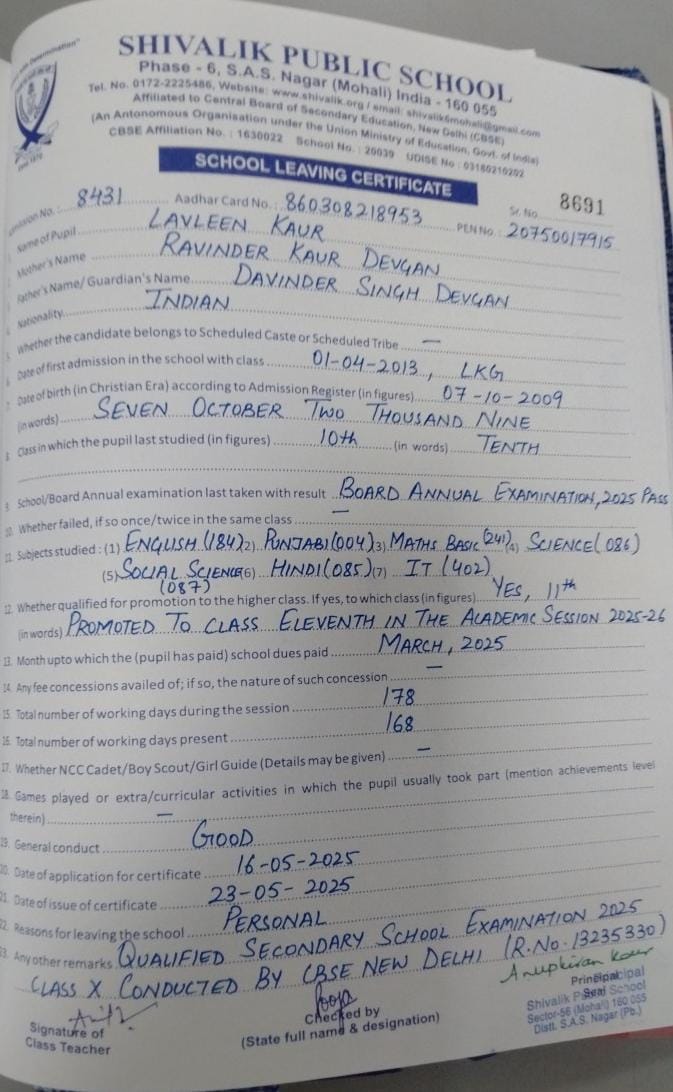 SHIVALIK PUBLIC SCHOOL
Phase - 6, S.A.S. Nagar (Mohali) India - 160 055
Tel. No. 0172-2225486, Website: www.shivalik.org / email: shivalik6mohali@gmail.com
Affiliated to Central Board of Secondary Education, New Delhi (CBSE)
(An Antonomous Organisation under the Union Ministry of Education, Govt. of India)
CBSE Affiliation No. : 1630022 School No. : 20039 UDISE No : 03180210202
SCHOOL LEAVING CERTIFICATE
Admission No. : 8431 Aadhar Card No. : 860308218953 Sr. No. 8691
PEN No. : 20750017915
Name of Pupil LAVLEEN KAUR
Mother's Name RAVINDER KAUR DEVGAN
Father's Name/ Guardian's Name DAVINDER SINGH DEVGAN
Nationality INDIAN
Whether the candidate belongs to Scheduled Caste or Scheduled Tribe —
6. Date of first admission in the school with class 01-04-2013, LKG
7. Date of birth (in Christian Era) according to Admission Register (in figures) 07-10-2009
(in words) SEVEN OCTOBER TWO THOUSAND NINE
8. Class in which the pupil last studied (in figures) 10th (in words) TENTH
9. School/Board Annual examination last taken with result BOARD ANNUAL EXAMINATION, 2025 PASS
10. Whether failed, if so once/twice in the same class —
11. Subjects studied : (1) ENGLISH (184) 2) PUNJABI (004) 3) MATHS BASIC (241) 4) SCIENCE (086)
(5) SOCIAL SCIENCE (6) HINDI (085) (7) IT (402)
(087)
12. Whether qualified for promotion to the higher class. If yes, to which class (in figures) YES, 11th
(in words) PROMOTED TO CLASS ELEVENTH IN THE ACADEMIC SESSION 2025-26
13. Month upto which the (pupil has paid) school dues paid MARCH, 2025
14. Any fee concessions availed of; if so, the nature of such concession —
15. Total number of working days during the session 178
16. Total number of working days present 168
17. Whether NCC Cadet/Boy Scout/Girl Guide (Details may be given) —
18. Games played or extra/curricular activities in which the pupil usually took part (mention achievements level
therein) —
19. General conduct GOOD
20. Date of application for certificate 16-05-2025
21. Date of issue of certificate 23-05-2025
22. Reasons for leaving the school PERSONAL
23. Any other remarks QUALIFIED SECONDARY SCHOOL EXAMINATION 2025
CLASS X CONDUCTED BY CBSE NEW DELHI (R.No. 13235330)
Anupkiran Kaur
Principal
Seal
Principal
Shivalik Public School
Sector-56 (Mohali) 160 055
Distt. S.A.S. Nagar (Pb.)
Signature of
Class Teacher
Checked by
(State full name & designation)